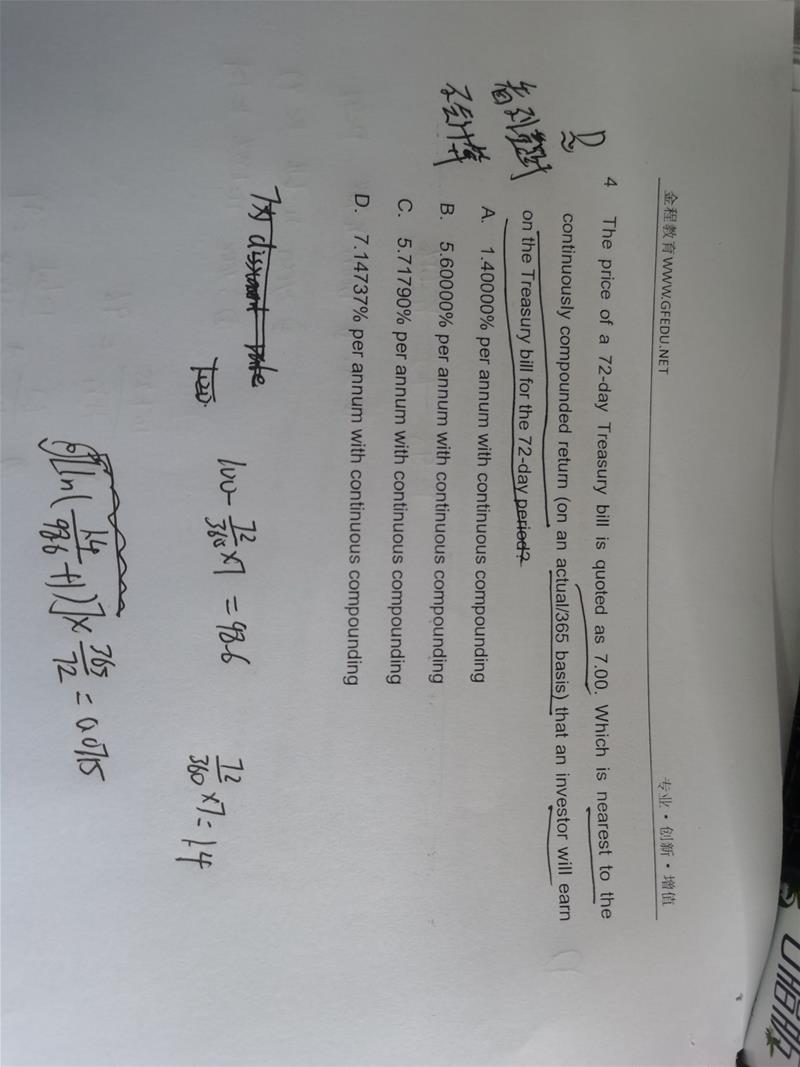 金程教育WWW.GFEDU.NET 专业·创新·增值
4 The price of a 72-day Treasury bill is quoted as 7.00. Which is nearest to the
continuously compounded return (on an actual/365 basis) that an investor will earn
on the Treasury bill for the 72-day period?
A. 1.40000% per annum with continuous compounding
B. 5.60000% per annum with continuous compounding
C. 5.71790% per annum with continuous compounding
D. 7.14737% per annum with continuous compounding
D
不会计算
7为 discount rate
100 - 72/360 × 7 = 98.6
72/360 × 7 = 1.4
[ln(1.4/98.6 + 1)] × 365/72 = 0.0715